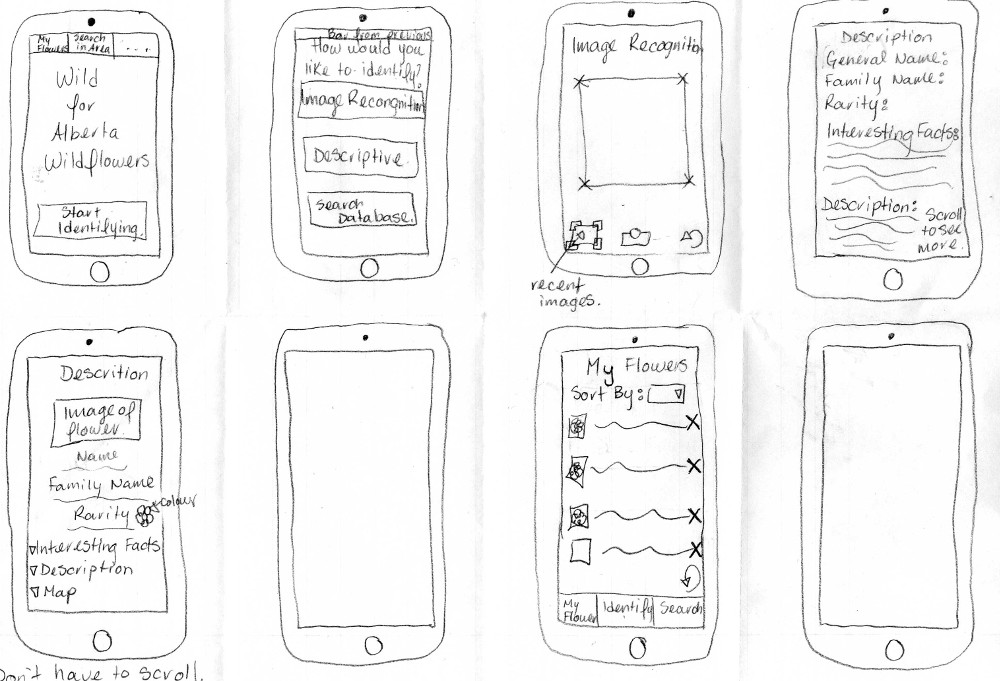 My Flowers
Search in Area
....
Wild
for
Alberta
Wildflowers
Start
Identifying.
Bar from previous
How would you
like to identify?
Image Recongnition
Descriptive.
Search
Database.
Image Recognition
recent
images.
Description
General Name:
Family Name:
Rarity:
Interesting Facts:
Description:
Scroll
to see
more.
Descrition
Image of
flower.
Name
Family Name
Rarity
colour
Interesting Facts
Description
Map
Don't have to scroll.
My Flowers
Sort By:
My
Flower
Identify
Search